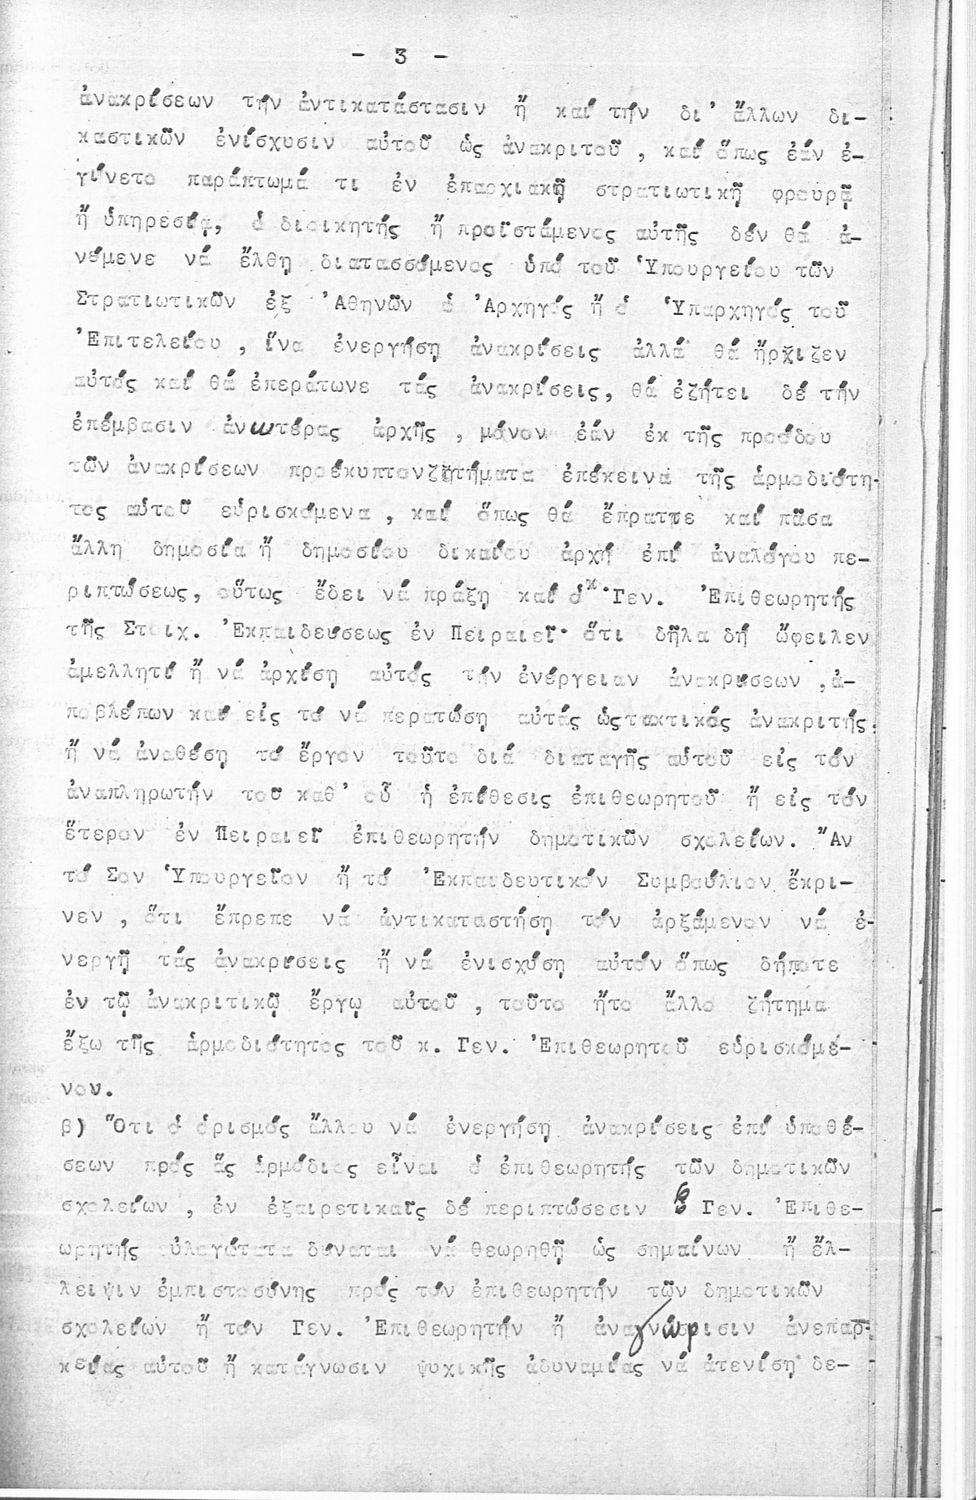 - 3 -
ἀνακρίσεων τήν ἀντικατάστασιν ἤ καί τήν δι' ἄλλων δι-
καστικῶν ἐνίσχυσιν αὐτοῦ ὡς ἀνακριτοῦ , καί ὅπως ἐάν ἐ-
γίνετο παράπτωμά τι ἐν ἐπαρχιακῇ στρατιωτικῇ φρουρᾷ
ἤ ὑπηρεσίᾳ, ὁ διοικητής ἤ προϊστάμενος αὐτῆς δέν θά ἀ-
νέμενε νά ἔλθη διατασσόμενος ὑπό τοῦ Ὑπουργείου τῶν
Στρατιωτικῶν ἐξ Ἀθηνῶν ὁ Ἀρχηγός ἤ ὁ Ὑπαρχηγός τοῦ
Ἐπιτελείου , ἵνα ἐνεργήση ἀνακρίσεις ἀλλά θά ἤρχιζεν
αὐτός καί θά ἐπεράτωνε τάς ἀνακρίσεις, θά ἐζήτει δέ τήν
ἐπέμβασιν ἀνωτέρας ἀρχῆς , μόνον ἐάν ἐκ τῆς προόδου
τῶν ἀνακρίσεων προέκυπτον ζητήματα ἐπέκεινα τῆς ἁρμοδιότη-
τος αὐτοῦ εὑρισκόμενα , καί ὅπως θά ἔπραττε καί πᾶσα
ἄλλη δημοσία ἤ δημοσίου δικαίου ἀρχή ἐπί ἀναλόγου πε-
ριπτώσεως, οὕτως ἔδει νά πράξη καί ὁ κ. Γεν. Ἐπιθεωρητής
τῆς Στοιχ. Ἐκπαιδεύσεως ἐν Πειραιεῖ· ὅτι δῆλα δή ὤφειλεν
ἀμελλητί ἤ νά ἀρχίση αὐτός τήν ἐνέργειαν ἀνακρίσεων ,ἀ-
ποβλέπων καί εἰς τό νά περατώση αὐτάς ὡς τακτικός ἀνακριτής,
ἤ νά ἀναθέση τό ἔργον τοῦτο διά διαταγῆς αὐτοῦ εἰς τόν
ἀναπληρωτήν του καθ' οὗ ἡ ἐπίθεσις ἐπιθεωρητοῦ ἤ εἰς τόν
ἕτερον ἐν Πειραιεῖ ἐπιθεωρητήν δημοτικῶν σχολείων. Ἄν
τό Σον Ὑπουργεῖον ἤ τό Ἐκπαιδευτικόν Συμβούλιον ἔκρι-
νεν , ὅτι ἔπρεπε νά ἀντικαταστήση τόν ἀρξάμενον νά ἐ-
νεργῇ τάς ἀνακρίσεις ἤ νά ἐνισχύση αὐτόν ὅπως δήποτε
ἐν τῷ ἀνακριτικῷ ἔργῳ αὐτοῦ , τοῦτο ἦτο ἄλλο ζήτημα
ἔξω τῆς ἁρμοδιότητος τοῦ κ. Γεν. Ἐπιθεωρητοῦ εὑρισκόμε-
νον.
β) Ὅτι ὁ ὁρισμός ἄλλου νά ἐνεργήση ἀνακρίσεις ἐπί ὑποθέ-
σεων πρός ἅς ἁρμόδιος εἶναι ὁ ἐπιθεωρητής τῶν δημοτικῶν
σχολείων , ἐν ἐξαιρετικαῖς δέ περιπτώσεσιν ὁ Γεν. Ἐπιθε-
ωρητής εὐλογώτατα δύναται νά θεωρηθῇ ὡς σημαίνων ἤ ἔλ-
λειψιν ἐμπιστοσύνης πρός τόν ἐπιθεωρητήν τῶν δημοτικῶν
σχολείων ἤ τόν Γεν. Ἐπιθεωρητήν ἤ ἀναγνώρισιν ἀνεπαρ-
κείας αὐτοῦ ἤ κατάγνωσιν ψυχικῆς ἀδυναμίας νά ἀτενίση δε-